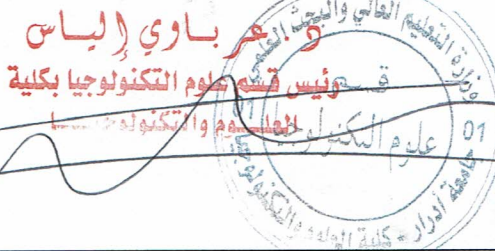 د. عرباوي إلياس
رئيس قسم علوم التكنولوجيا بكلية
العلوم والتكنولوجيا
وزارة التعليم العالي والبحث العلمي
قسم
علوم التكنولوجيا
01
01
جامعة أدرار - كلية العلوم والتكنولوجيا